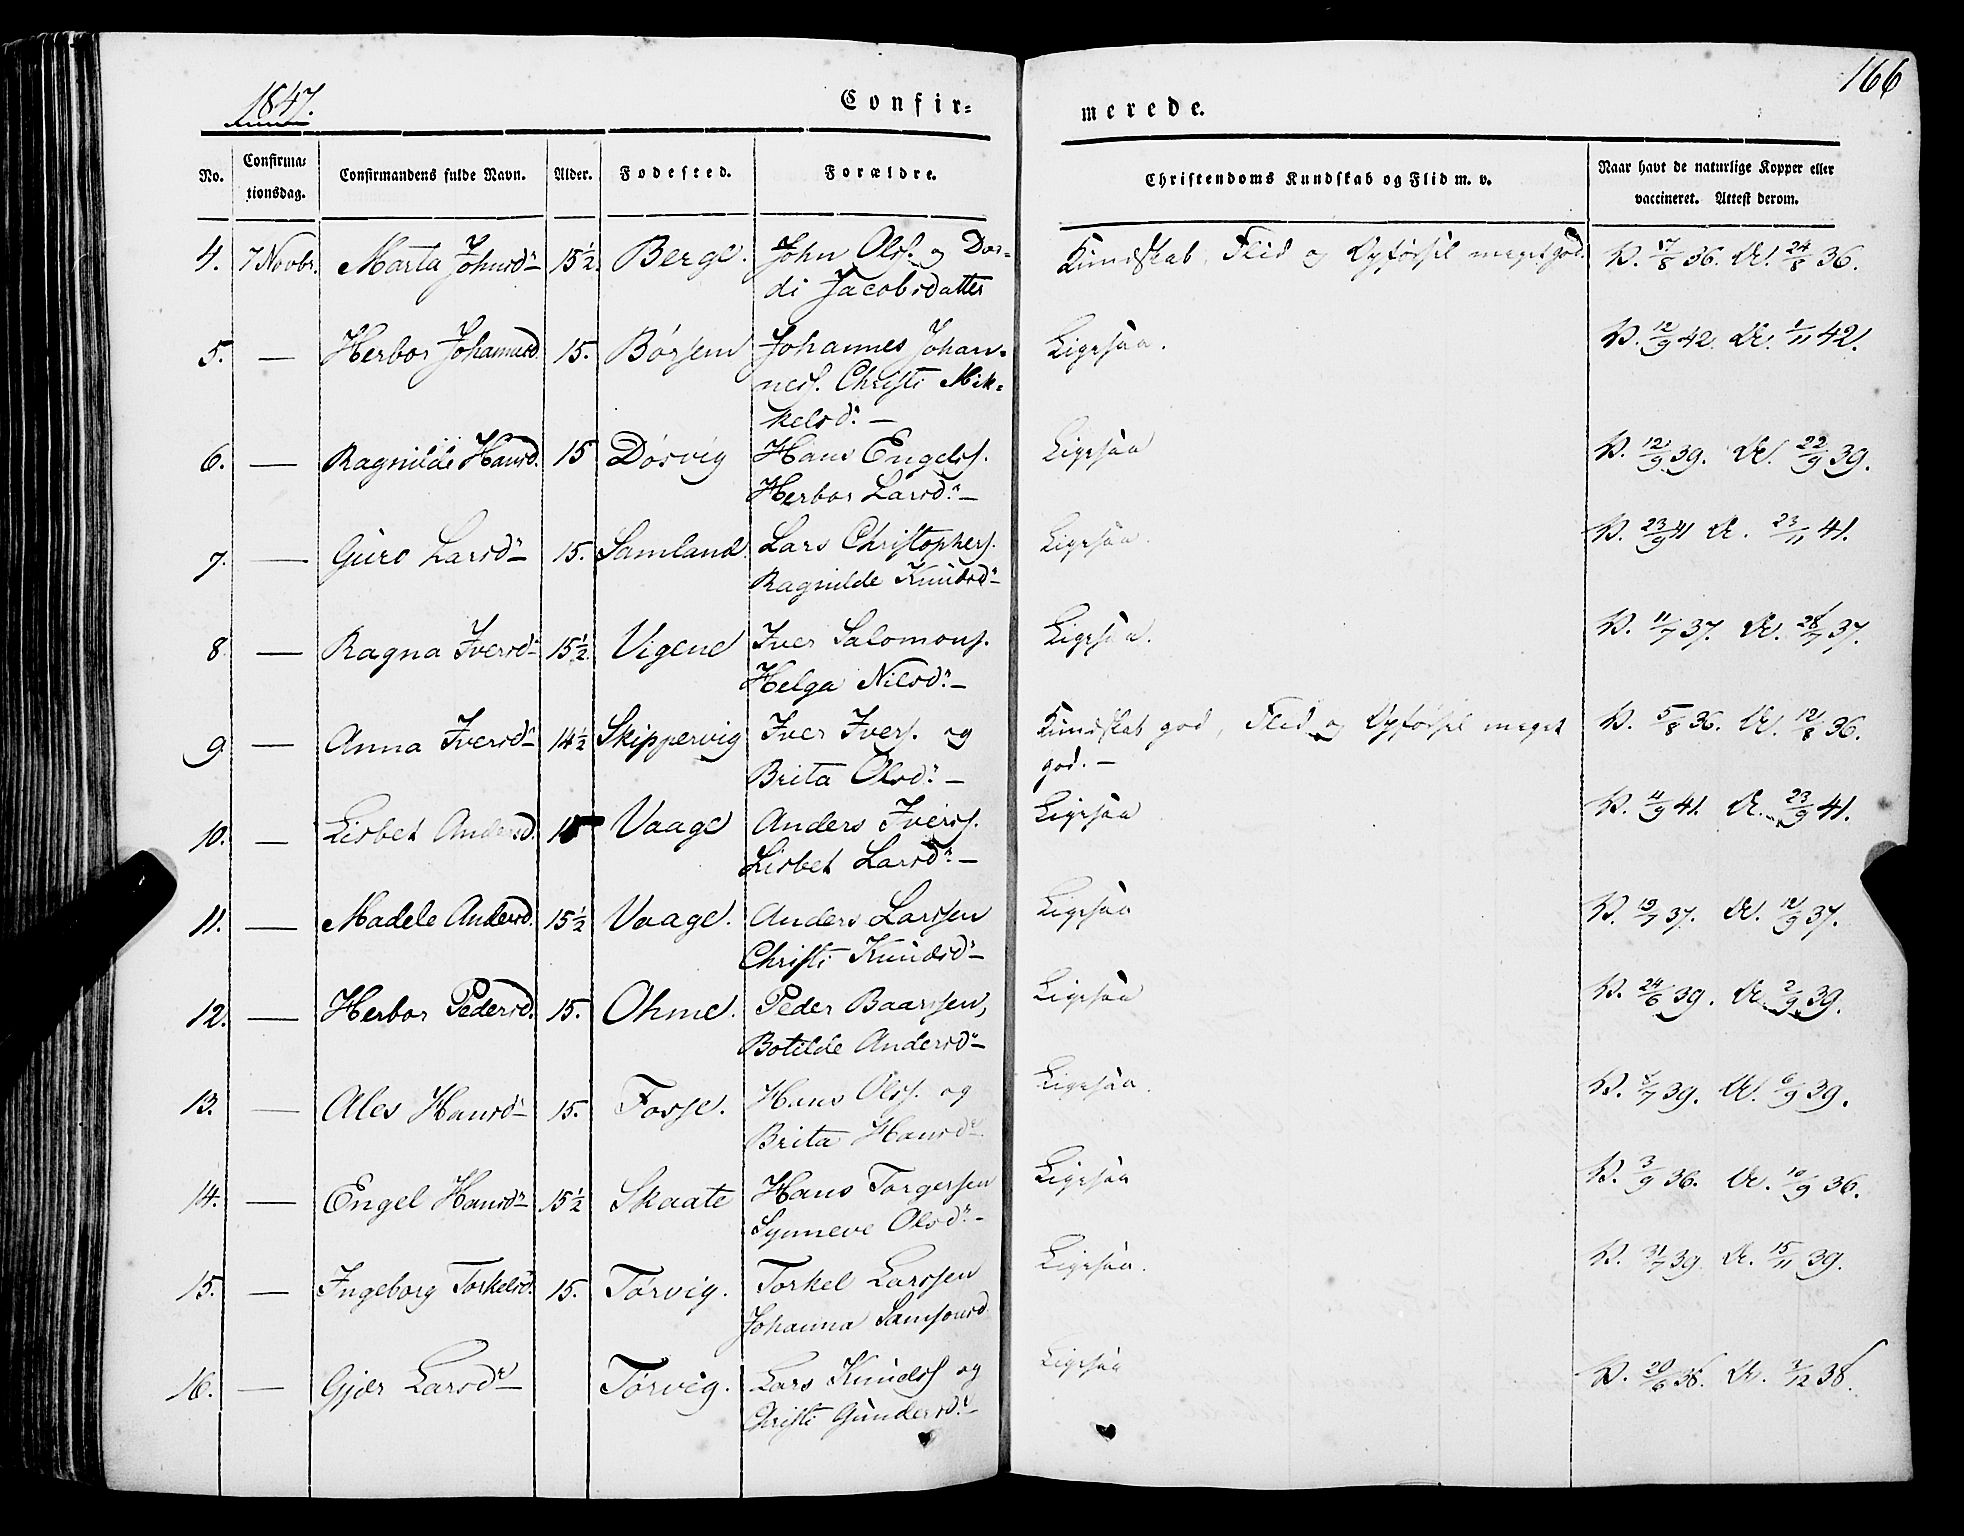 1847.
Confir=
merede.
166
No.
Confirma=
tionsdag.
Confirmandens fulde Navn.
Alder.
Fødested.
Forældre.
Christendoms Kundskab og Flid m. v.
Naar havt de naturlige Kopper eller
vaccineret. Attest derom.
4. 7 Novbr. Marta Johnsd. 15½. Berge. John Ols. og Dor-
di Jacobsdatter
Kundskab, Flid og Opførsel meget god. V. 17/8 36. At. 24/8 36.
5. — Herbor Johannesd. 15. Børsem Johannes Johan-
nes. Christi Mik-
kelsd. —
Ligesaa. V. 12/9 42. At. 1/11 42.
6. — Ragnilde Hansd. 15 Dosvig Hans Engels.
Herbor Larsd. —
Ligesaa V. 12/9 39. At. 22/9 39.
7. — Guro Larsd. 15. Samland. Lars Christophers.
Ragnilde Knudsd.
Ligesaa. V. 23/9 41 At. 23/11 41.
8 — Ragna Iversd. 15½. Vigene Iver Salomons.
Helga Nilsd. —
Ligesaa. V. 11/7 37. At. 28/7 37.
9 — Anna Iversd. 14½ Skippervig Iver Ivers. og
Brita Olsd. —
Kundskab god, Flid og Opførsel meget
god. —
V. 5/8 36. At. 12/8 36.
10. — Lisbet Andersd. 15 Vaage Anders Ivers.
Lisbet Larsd. —
Ligesaa V. 11/9 41. At. 23/9 41.
11. — Madele Andersd. 15½ Vaage. Anders Larssen
Christi Knudsd.
Ligesaa V. 19/7 37. At. 12/9 37.
12. — Herbor Pedersd. 15. Ohme. Peder Baarssen,
Botilde Andersd.
Ligesaa V. 24/6 39. At. 2/9 39.
13. — Ales Hansd. 15. Fosse. Hans Ols. og
Brita Hansd.
Ligesaa. V. 8/7 39. At. 6/9 39.
14. — Engel Hansd. 15½ Skaate Hans Torgersen
Synneve Olsd. —
Ligesaa V. 3/9 36. At. 10/9 36.
15. — Ingeborg Torkelsd. 15. Tørvig. Torkel Larssen
Johanna Samsonsd.
Ligesaa. V. 31/7 39 At. 15/11 39.
16. — Gjør Larsd. Tørvig. Lars Knuds. og
Christi Gundersd.
Ligesaa V. 20/6 38. At. 7/12 38.